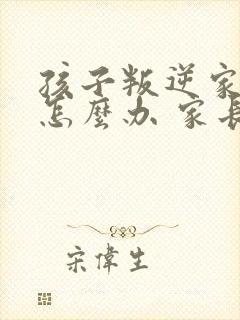 孩子叛逆家
怎麼办 家長
宋偉生